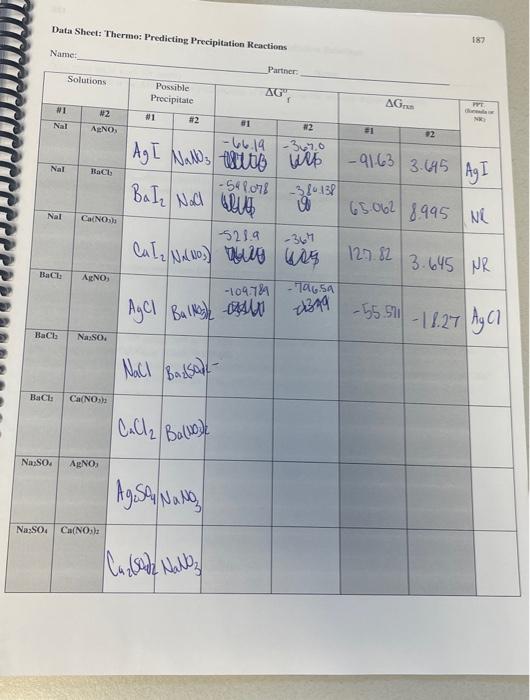 187
Data Sheet: Thermo: Predicting Precipitation Reactions
Name:
Partner:
Solutions Possible Precipitate ΔG°f ΔGrxn PPT. (formula or NR)
#1 #2 #1 #2 #1 #2 #1 #2
NaI AgNO₃ AgI NaNO₃ -66.19 -367.0 -91.63 3.695 AgI
NaI BaCl₂ BaI₂ NaCl -598.078 -380.138 65.062 8.995 NR
NaI Ca(NO₃)₂ CaI₂ Na(NO₃) -528.9 -367 127.82 3.645 NR
BaCl₂ AgNO₃ AgCl Ba(NO₃)₂ -109.789 -796.59 -55.571 -18.27 AgCl
BaCl₂ Na₂SO₄ NaCl
BaCl₂ Ca(NO₃)₂ CaCl₂ Ba(NO₃)₂
Na₂SO₄ AgNO₃ Ag₂SO₄ NaNO₃
Na₂SO₄ Ca(NO₃)₂ Ca₂(SO₄)₂ NaNO₃